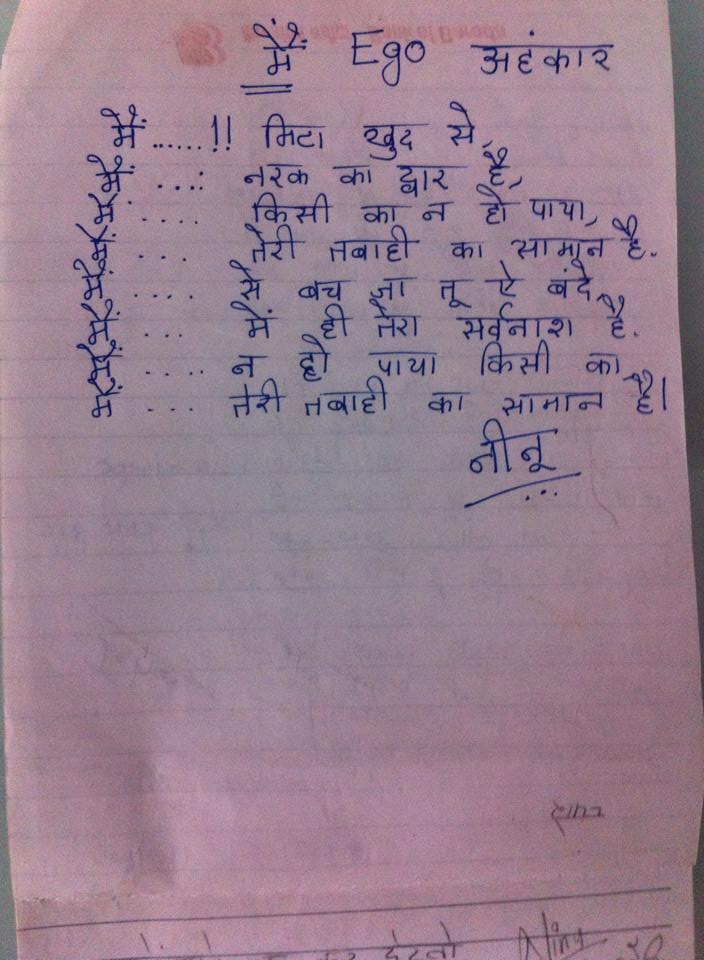 मैं Ego अहंकार
मैं ......!! मिटा खुद से,
मैं ...: नरक का द्वार है,
मैं .... किसी का न हो पाया,
मैं ... तेरी तबाही का सामान है.
मैं .... से बच जा तू ऐ बंदे,
मैं ... में ही तेरा सर्वनाश है.
मैं .... न हो पाया किसी का
मैं ... तेरी तबाही का सामान है।
नीनू